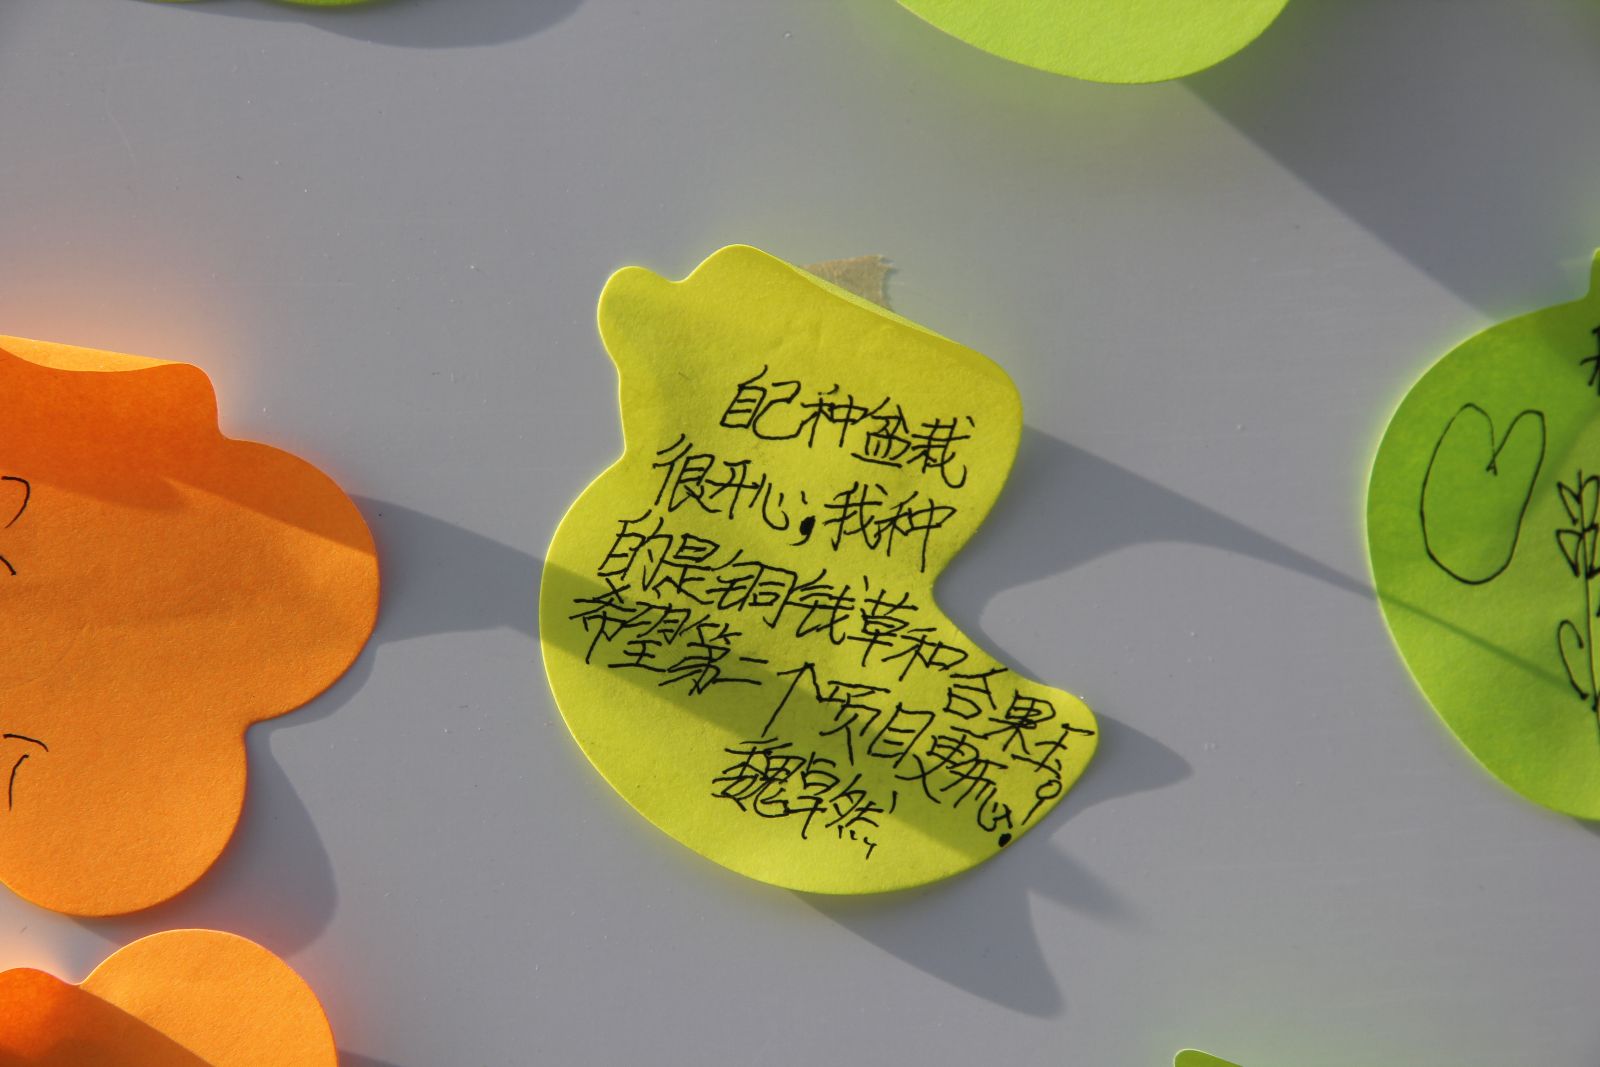 自己种盆栽
很开心,我种
的是铜钱草和合果玉。
希望第二个项目更开心.
魏卓然